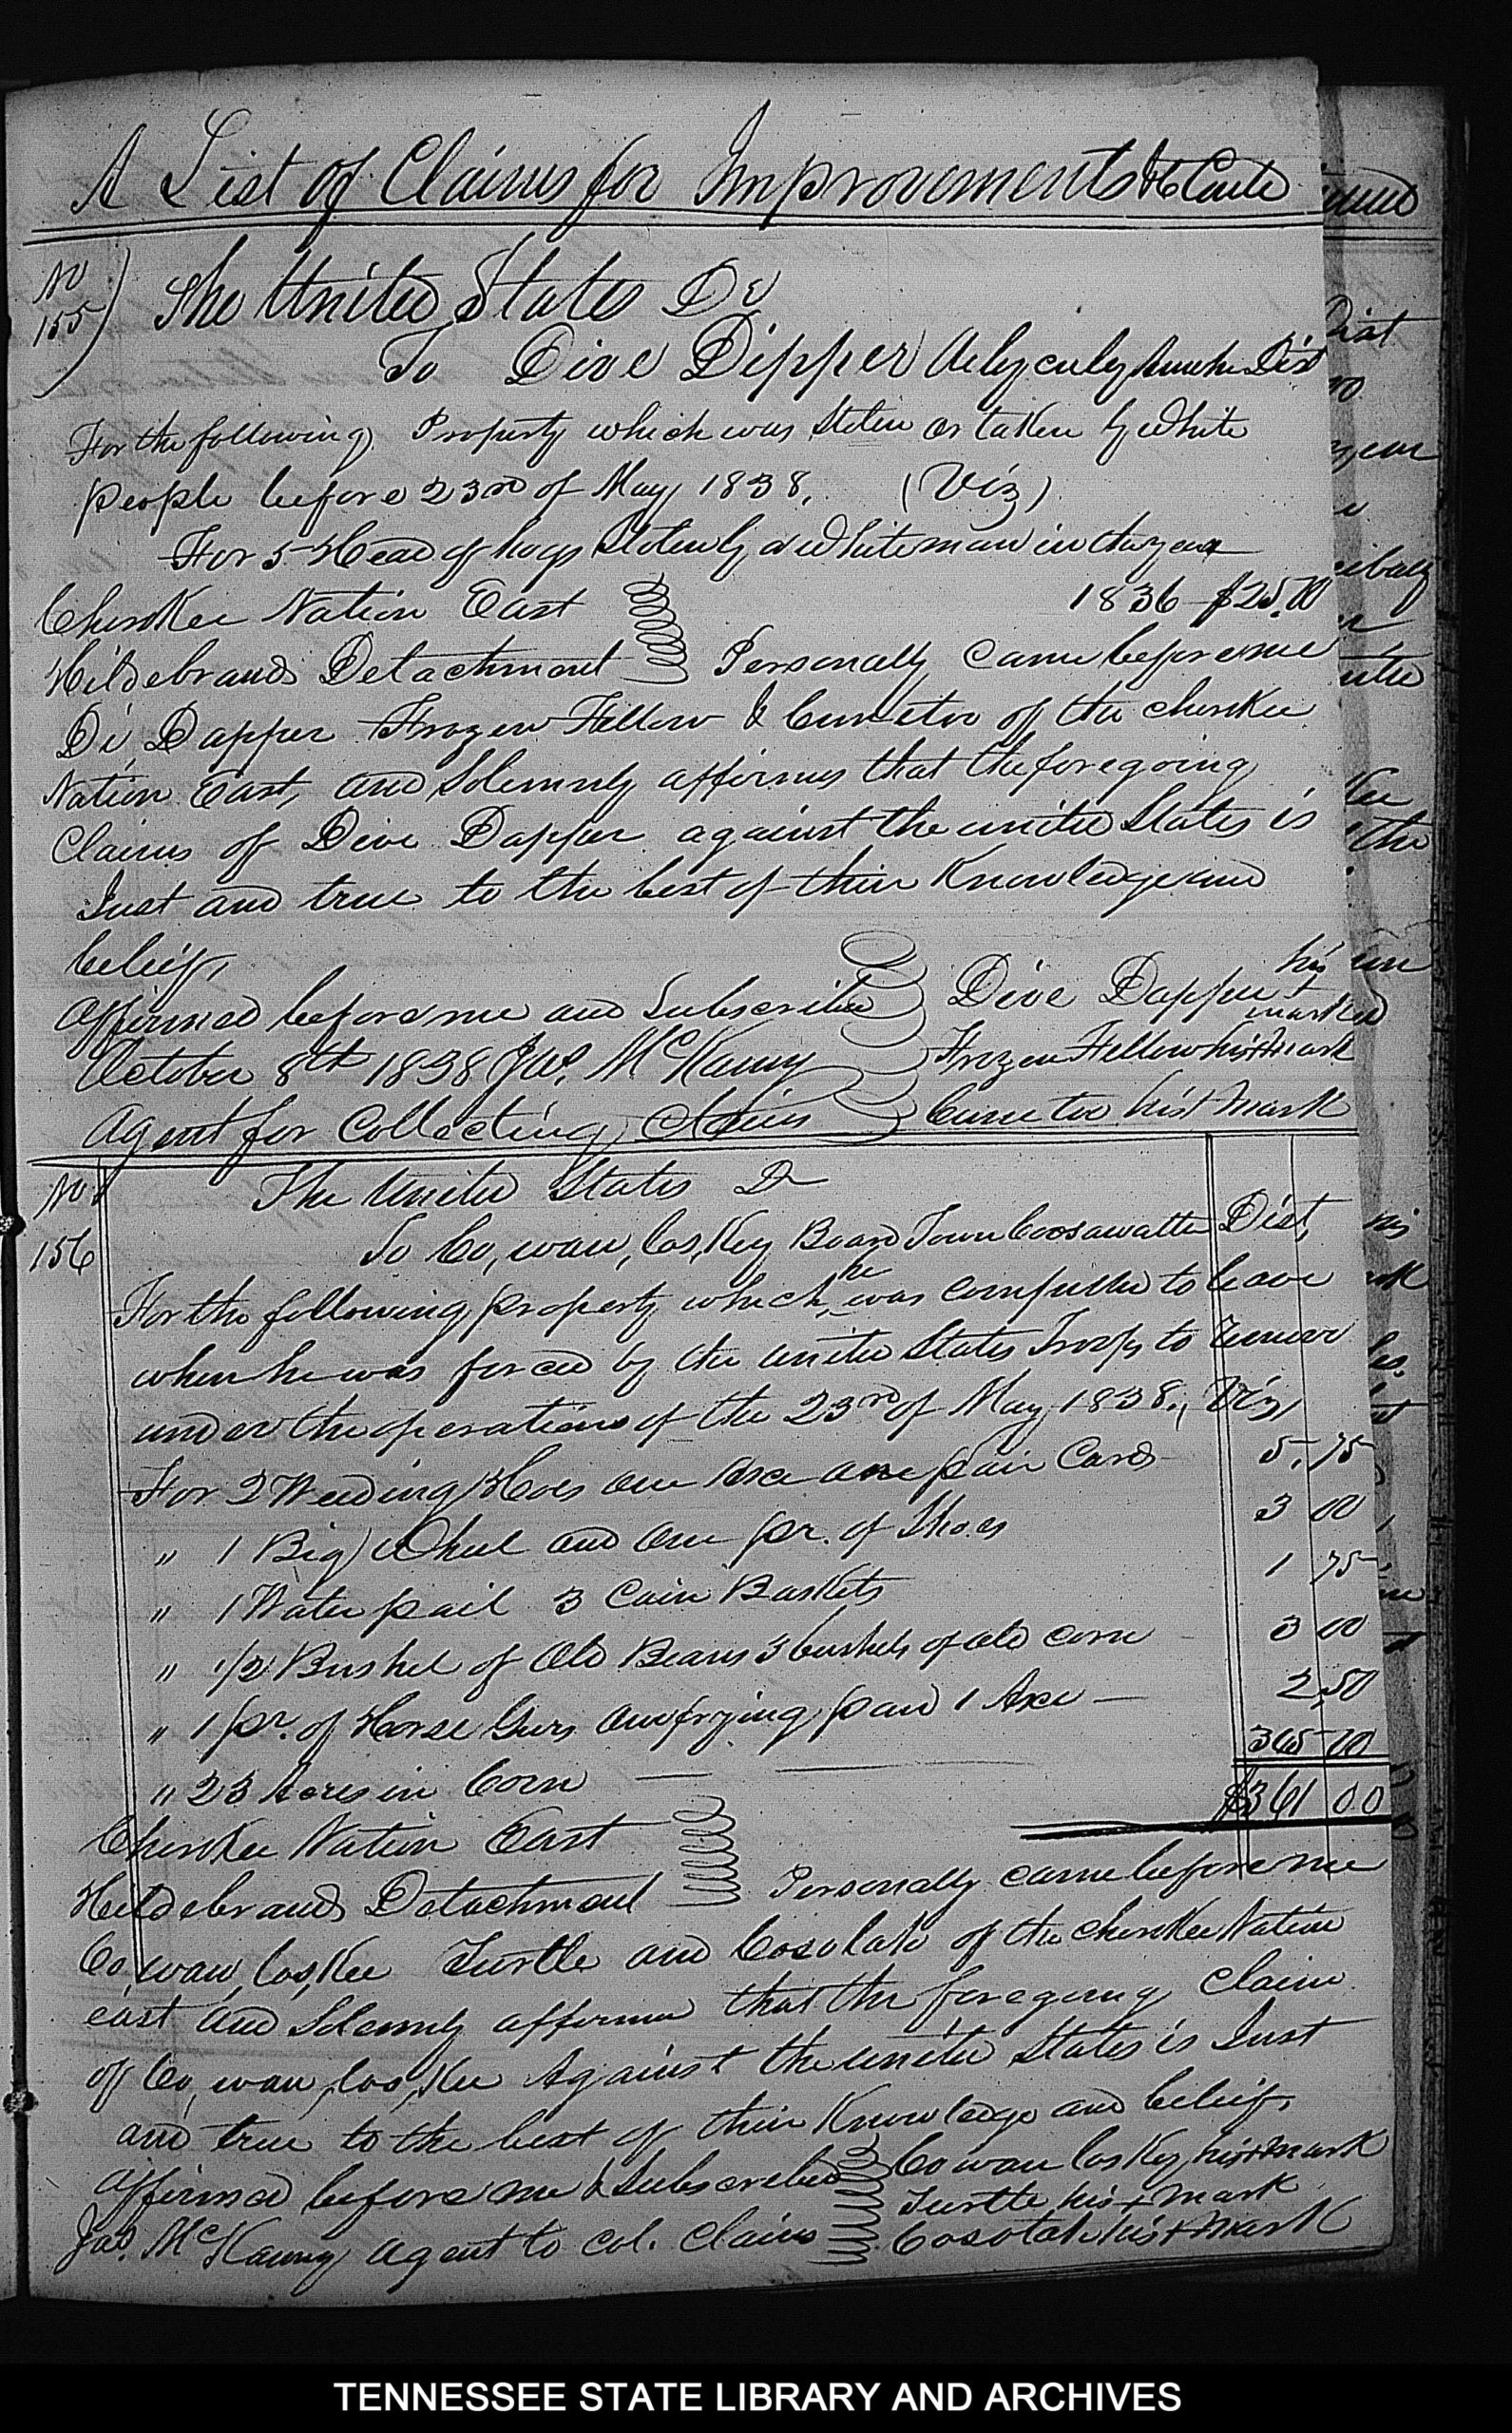 A List of Claims for Improvements &c Conti
No
155) The United States Dr
To Dive Dipper Dist
For the following Property which was Stolen or taken by White
people before 23rd of May 1838, (Viz)
For 5 Head of hogs Stolen by a White man in the year
1836 $25.00
Cherokee Nation East
Hildebrands Detachment Personally came before me
Di, Dapper Frozen Fellow & of the cherokee
Nation East, and Solemnly affirms that the foregoing
Claims of Dive Dapper against the united States is
Just and true to the best of their Knowledge and
belief,
affirmed before me and Subscribed Dive Dapper his + mark
October 8th 1838 Jas. McKamy Frozen Fellow his + mark
Agent for Collecting Claims his + mark
No
156
The United States Dr
To Co, waw, los, Key Town Coosawattee Dist,
For the following property which he was compelled to leave
when he was forced by the united States Troops to remove
under the operations of the 23rd of May 1838., Viz,
For 2 Weeding Hoes one Axe one pair Cards 5.75
" 1 Big Wheel and one pr. of Shoes 3 00
" 1 Water pail 3 Cain Baskets 1 75
" 1/2 Bushel of Old Beans 3 bushels of old corn 3 00
" 1 pr. of Horse Gears one frying pan 1 Axe — 2,50
" 23 Acres in Corn — 345 00
$361 00
Cherokee Nation East
Hildebrands Detachment Personally came before me
Co, waw, los, Kee Turtle and Cosolah of the cherokee Nation
east and Solemnly affirm that the foregoing claim
of Co, waw, los, Kee Against the united States is Just
and true to the best of their Knowledge and belief,
affirmed before me & Subscribed Co waw los Key his + mark
Turtle his + mark
Jas. McKamy agent to col. Claims Cosotah his + mark
TENNESSEE STATE LIBRARY AND ARCHIVES